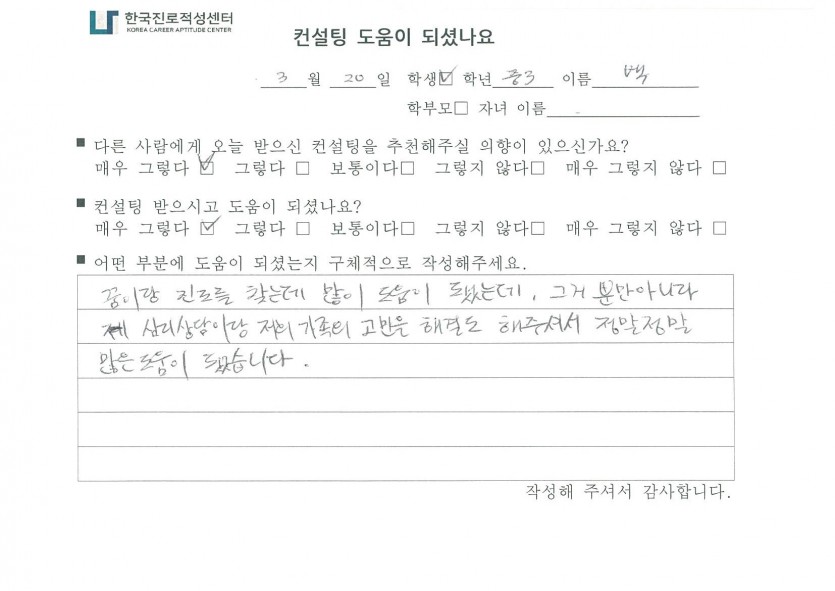 한국진로적성센터
KOREA CAREER APTITUDE CENTER
컨설팅 도움이 되셨나요
3 월 20 일 학생☑ 학년 중3 이름 백
학부모□ 자녀 이름
■ 다른 사람에게 오늘 받으신 컨설팅을 추천해주실 의향이 있으신가요?
매우 그렇다 ☑ 그렇다 □ 보통이다□ 그렇지 않다□ 매우 그렇지 않다 □
■ 컨설팅 받으시고 도움이 되셨나요?
매우 그렇다 ☑ 그렇다 □ 보통이다□ 그렇지 않다□ 매우 그렇지 않다 □
■ 어떤 부분에 도움이 되셨는지 구체적으로 작성해주세요.
꿈이랑 진로를 찾는데 많이 도움이 됐는데, 그거 뿐만아니라
심리상담이랑 저의 가족의 고민은 해결도 해주셔서 정말정말
많은도움이 됐습니다.
작성해 주셔서 감사합니다.